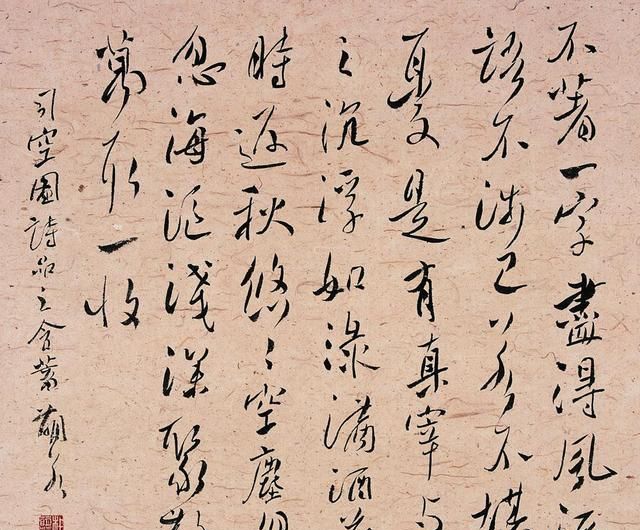 不著一字盡得風流
語不涉己若不堪
憂是有真宰與
之沉浮如淥滿酒花
時返秋悠〻空塵忽
忽海漚淺深聚散
萬取一收
司空圖詩品之含蓄